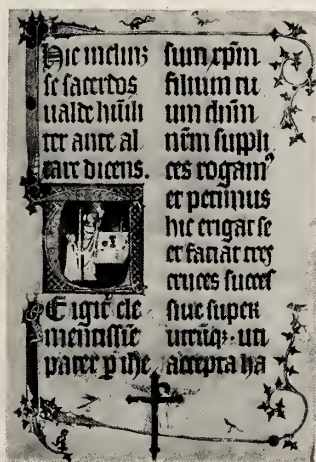 Hic inclinꝫ
se sacerdos
ualde hūili
ter ante al
tare dicens.
E igit̃ cle
mentissīe
pater p̱ ihe
sum xp̄m
filium tu
um dñm
nr̄m suppli
ces rogamꝰ
et petimus
hic erigat se
et faciat tres
cruces succes
siue super
utrūqꝫ. uti
accepta ha